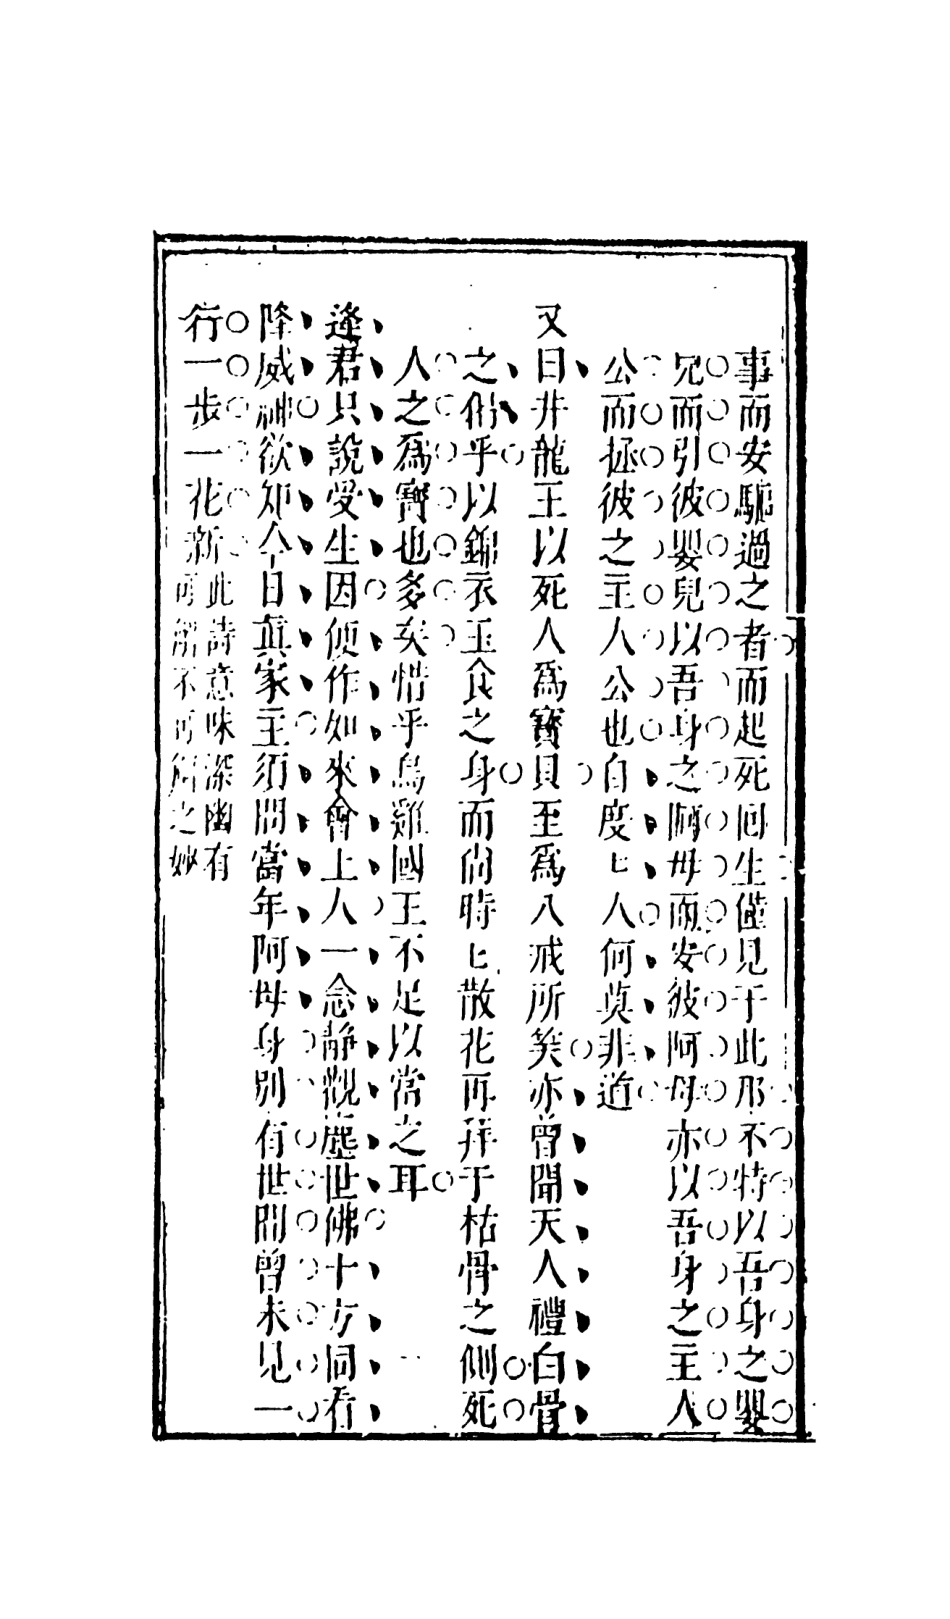 事而安驅過之者而起死回生僅見于此那不特以吾身之嬰
兒而引彼嬰兒以吾身之阿母而安彼阿母亦以吾身之主人
公而拯彼之主人公也自度匕人何莫非道
又曰井龍王以死人爲寶貝至爲八戒所笑亦曾聞天人禮白骨
之偈乎以錦衣玉食之身而尙時匕散花再拜于枯骨之側死
人之爲寶也多矣惜乎烏雞國王不足以當之耳
逢君只說受生因便作如來會上人一念靜觀塵世佛十方同看
降威神欲知今日真家主須問當年阿母身別有世間曾未見一
行一步一花新此詩意味深幽有
可解不可解之妙